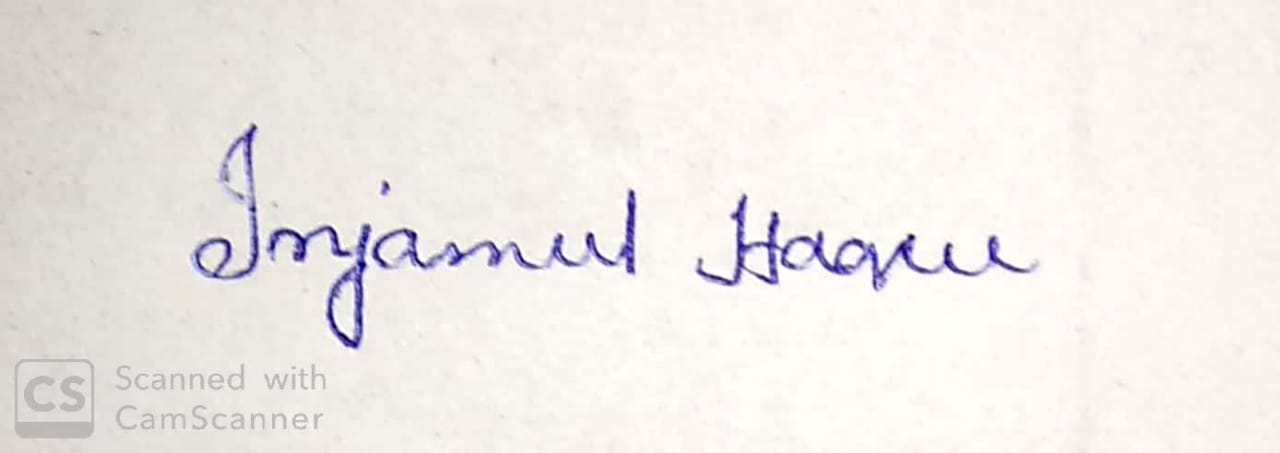 Injamul Haque
CS Scanned with
CamScanner